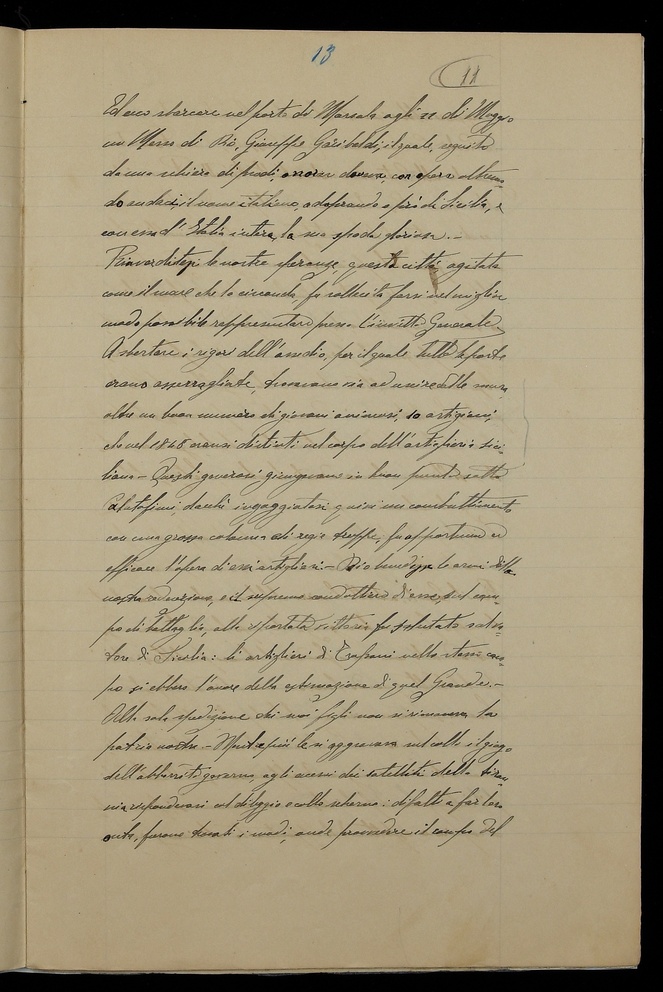 13
11
Ed ecco sbarcare nel porto di Marsala agli 11 di Maggio
un Messo di Dio, Giuseppe Garibaldi, il quale, seguito
da una schiera di prodi, onorar doveva, con opera
il nome italiano, adoprando a prò di Sicilia, e
con essa d'Italia intera, la sua spada gloriosa. –
Rinverditesi le nostre speranze, questa città, agitata
come il mare che la circonda, fu sollecita farsi nel miglior
modo possibile rappresentare presso l'invitto Generale.
A sbertare i rigori dell'assedio, per il quale tutte le porte
erano asserragliate, trovarono via ad uscire dalle mura,
oltre un buon numero di giovani animosi, 10 artigiani,
che nel 1848 eransi distinti nel corpo dell'artiglieria sici-
liana – Questi generosi giunsero in buon punto sotto
Calatafimi, dacchè ingaggiatosi quivi un combattimento
con una grossa colonna di regie truppe, fu opportuna ed
efficace l'opera di essi artiglieri. – Dio benedisse le armi della
nostra redenzione, e il supremo condottiero di esse, sul cam-
po di battaglia, alla riportata vittoria fu salutato salva-
tore di Sicilia: li artiglieri di Trapani nello stesso cam-
po si ebbero l'onore della estimazione di quel Grande. –
Alla sola spedizione dei suoi figli non si rimaneva la
patria nostra – Mentre più le si aggravava sul collo il giogo
dell'abborrito governo, agli eccessi dei satelliti della tiran-
nia rispondevasi col dileggio e collo scherno: difatti a far loro
onta, furono trovati i modi, onde provvedere il campo del